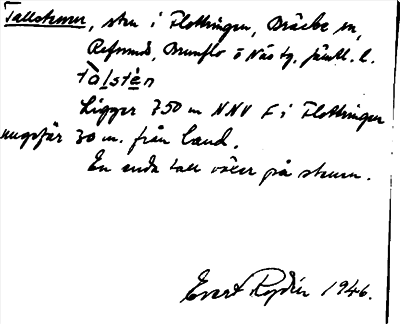 Tallstenen, sten i Flottringen, Bräcke sn,
Refsunds, Brunflo o Näs tg, Jämtl. l.
tàlstén
Ligger 750 m NNV F i Flottringen
ungefär 30 m. från land.
En enda tall växer på stenen.
Evert Rydén 1946.